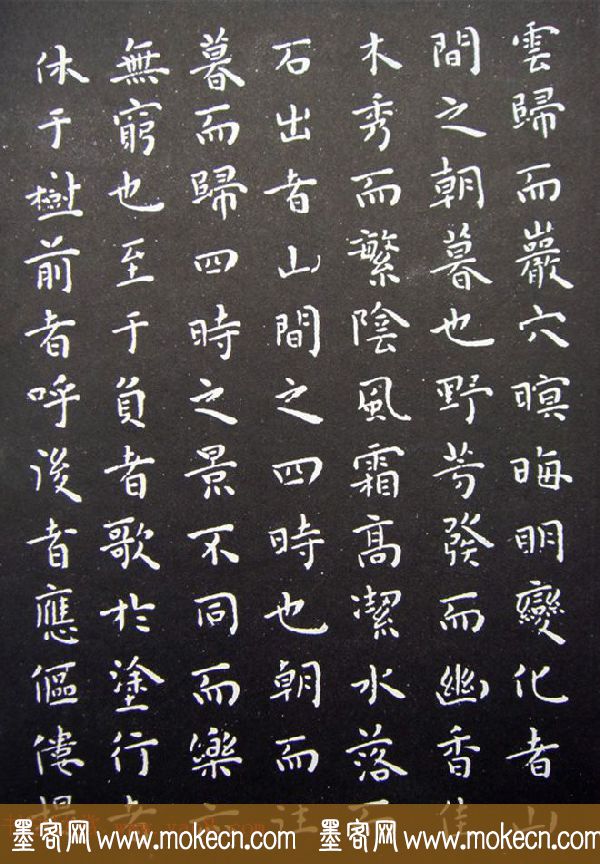 雲歸而巖穴暝晦明變化者山
間之朝暮也野芳發而幽香
木秀而繁陰風霜高潔水落
石出者山間之四時也朝而往
暮而歸四時之景不同而樂
無窮也至于負者歌於塗行者
休于樹前者呼後者應傴僂提
墨客网 www.mokecn.com 墨客网 www.mokecn.com